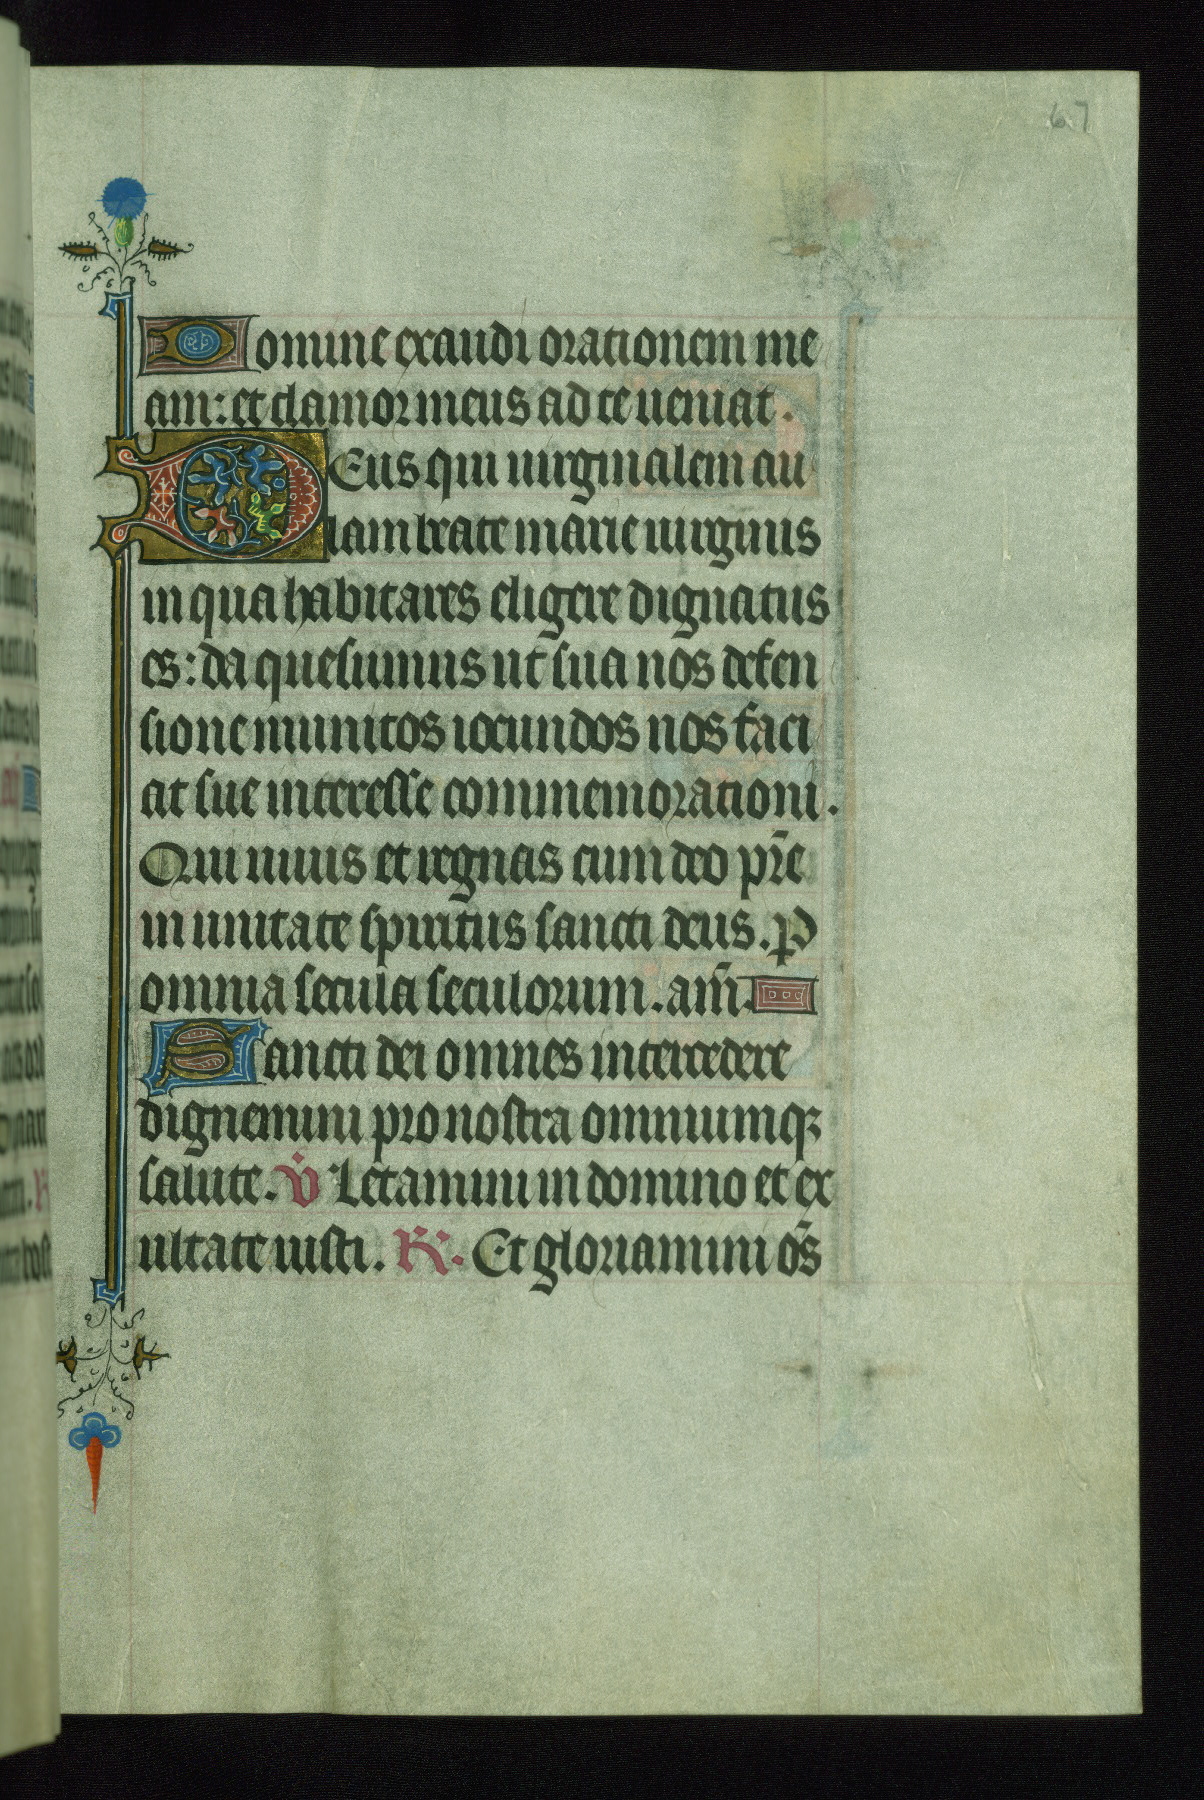 67
Domine exaudi orationem me
am: et clamor meus ad te ueniat.
Deus qui uirginalem au
lam beate marie uirginis
in qua habitares eligere dignatus
es: da quesumus ut sua nos defen
sione munitos iocundos nos faci
at sue interesse commemorationi.
Qui uiuis et regnas cum deo pr̄e
in unitate spiritus sancti deus. ꝑ
omnia secula seculorum. am̄.
Sancti dei omnes intercedere
dignemini pro nostra omniumqꝫ
salute. V̇ Letamini in domino et ex
ultate iusti. R̄. Et gloriamini om̄s